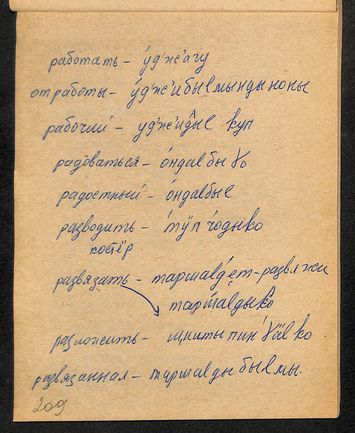 работать – у́д'ж'агу
отработы – у́д'ж'ибылмындыноны
рабочий – уд'ж'ид́ыл куп
радоваться – о́ндалбы γо
радостный – о́ндалбыl
разводить – 'тӱп 'чо̄дыко
костёр
развязать – таршалд́ет – развяжи
таршалдыко̄
разложить – щиты пин 'γӓlко
развязанная – туршалды быlмы.
209